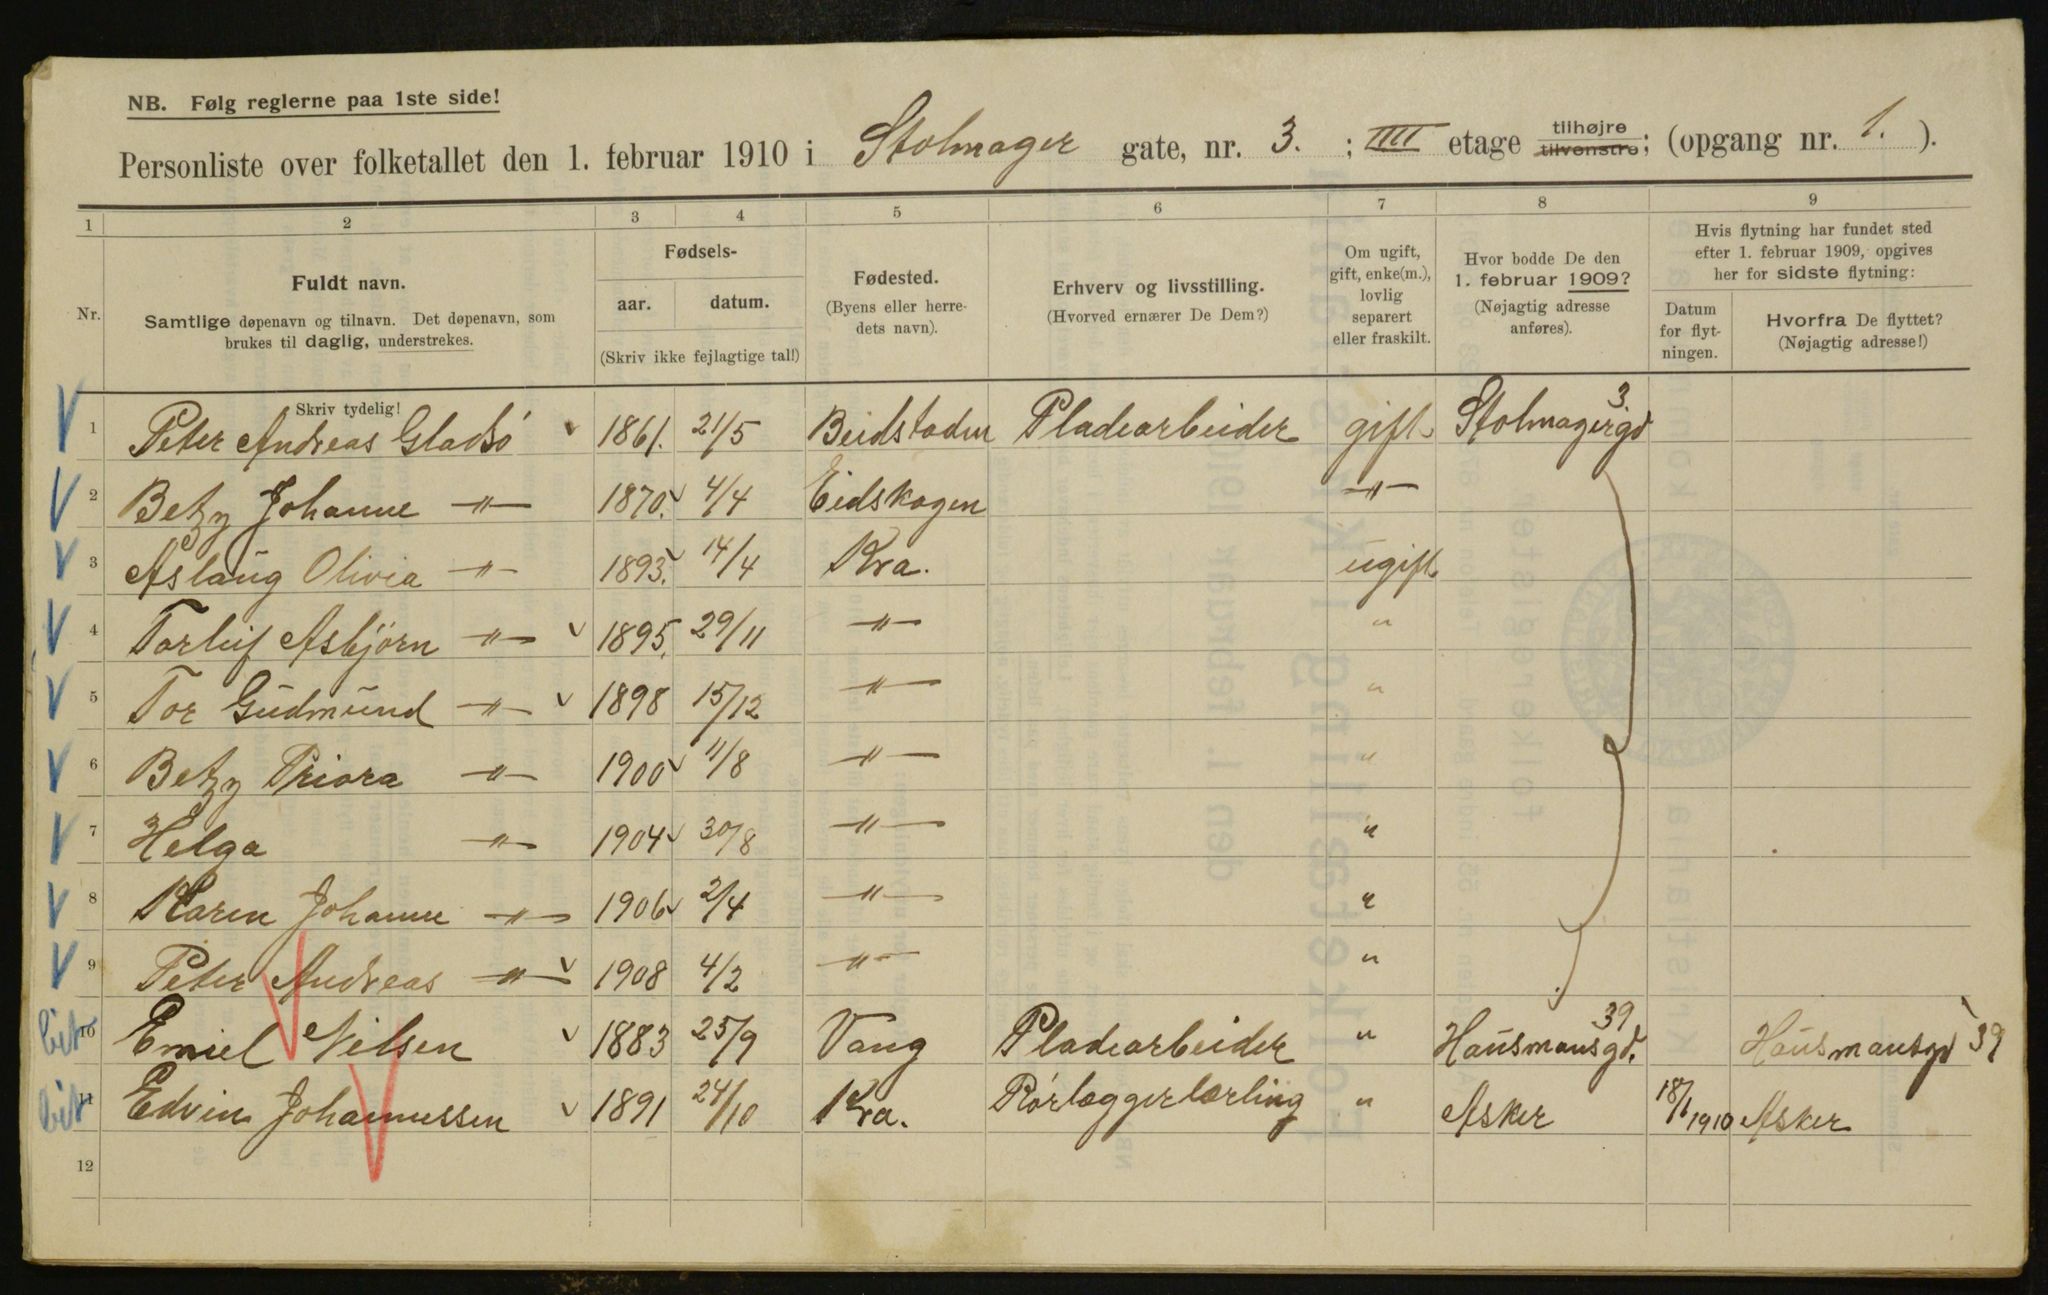 NB. Følg reglerne paa 1ste side!
Personliste over folketallet den 1. februar 1910 i Stolmager gate, nr. 3. ; IIII etage tilhøjre tilvenstre; (opgang nr. 1. ).
1 2 3 4 5 6 7 8 9
Nr.
Fuldt navn.
Samtlige døpenavn og tilnavn. Det døpenavn, som
brukes til daglig, understrekes.
Skriv tydelig!
Fødsels-
aar. datum.
(Skriv ikke fejlagtige tal!)
Fødested.
(Byens eller herre-
dets navn).
Erhverv og livsstilling.
(Hvorved ernærer De Dem?)
Om ugift,
gift, enke(m.),
lovlig
separert
eller fraskilt.
Hvor bodde De den
1. februar 1909?
(Nøjagtig adresse
anføres).
Hvis flytning har fundet sted
efter 1. februar 1909, opgives
her for sidste flytning:
Datum
for flyt-
ningen.
Hvorfra De flyttet?
(Nøjagtig adresse!)
1 Peter Andreas Gladsó 1861. 21/5 Beidstaden Pladearbeider gift. Stolmagergd 3.
2 Betzy Johanne -"- 1870. 4/4 Eidskogen -"-
3 Aslaug Olivia -"- 1893. 14/4 Kra. ugift.
4 Torleif Asbjörn -"- 1895. 29/11 -"- "
5 Tor Gudmund -"- 1898 15/12 -"- "
6 Betzy Priora -"- 1900 11/8 -"- "
7 Helga -"- 1904 30/8 -"- "
8 Karen Johanne -"- 1906 2/4 -"- "
9 Peter Andreas -"- 1908 4/2 -"- "
10 Emiel Nilsen 1883 25/9 Vang Pladearbeider " Hausmansgd. 39 Hausmansgd 39
11 Edvin Johannessen 1891 24/10 Kra. Rórlæggerlærling " Asker 18/1 1910 Asker
12